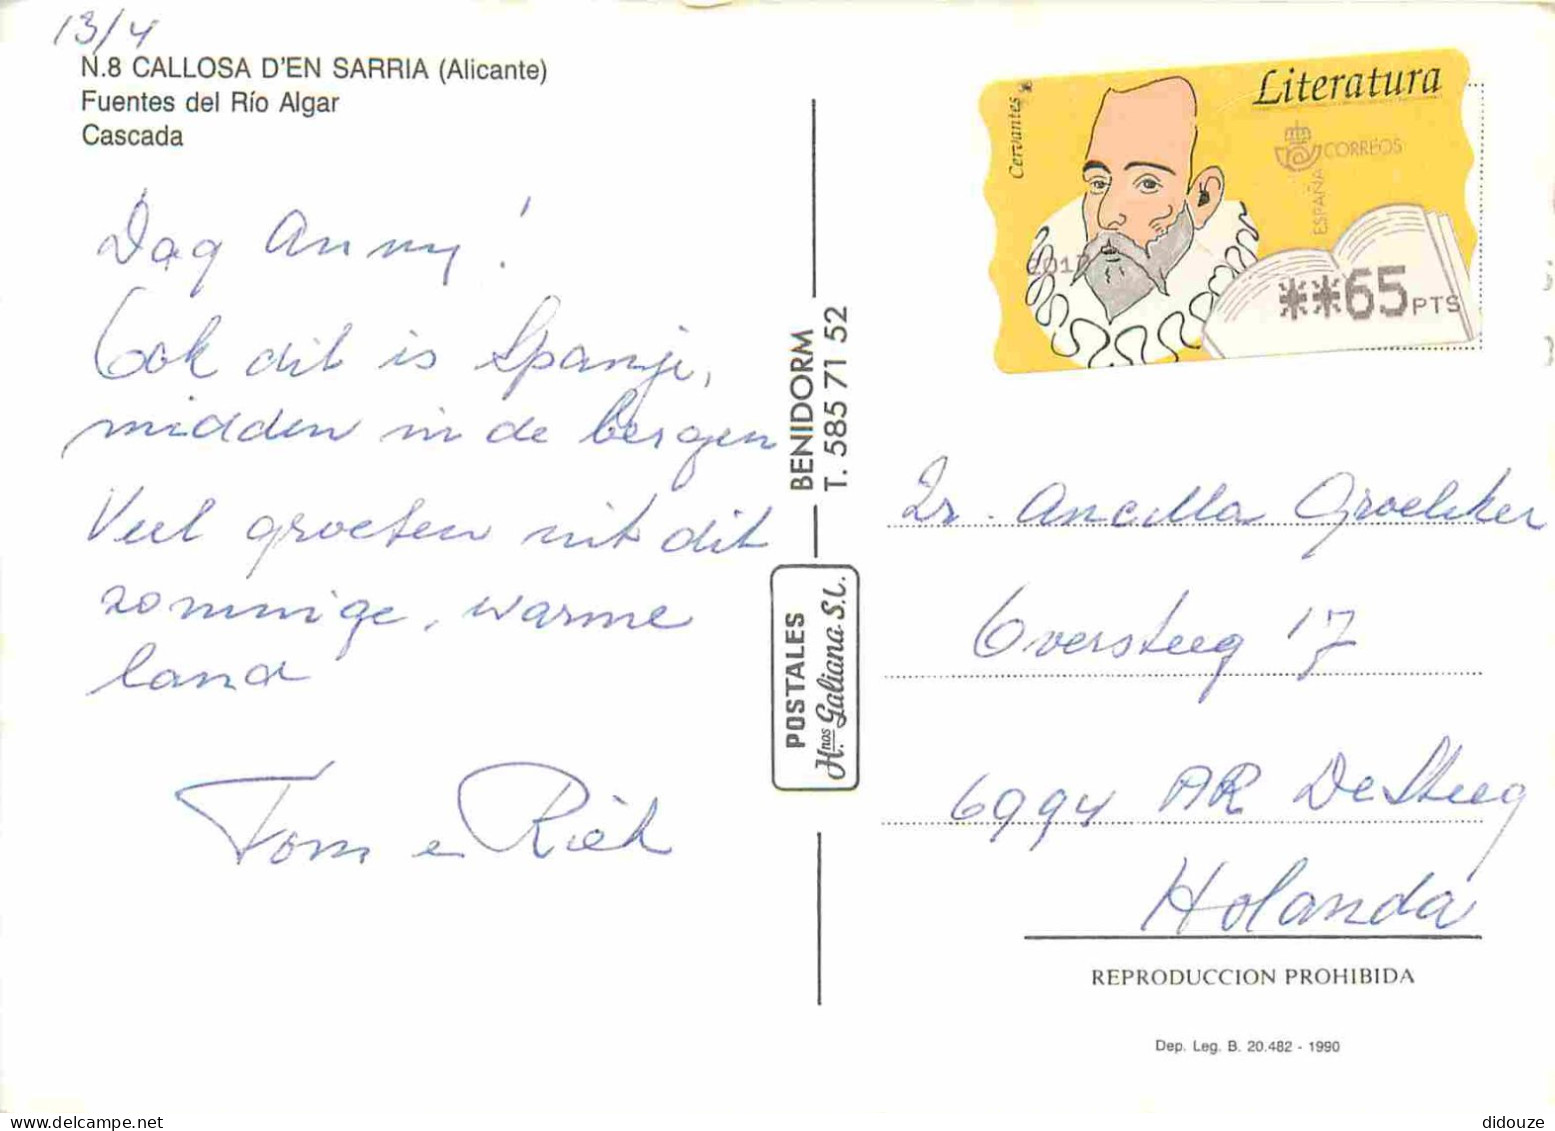 13/4
N.8 CALLOSA D'EN SARRIA (Alicante)
Fuentes del Río Algar
Cascada
Dag Anny!
Ook dit is Spanje,
midden in de bergen
Veel groeten uit dit
zonnige, warme
land
Tom e Riek
BENIDORM
T. 585 71 52
POSTALES
H.nos Galiana S.L.
Cervantes
Literatura
CORREOS
ESPAÑA
**65PTS
Zr. Ancilla
Oversteeg 17
6994 AR De Steeg
Holanda
REPRODUCCION PROHIBIDA
Dep. Leg. B. 20.482 - 1990
didouze